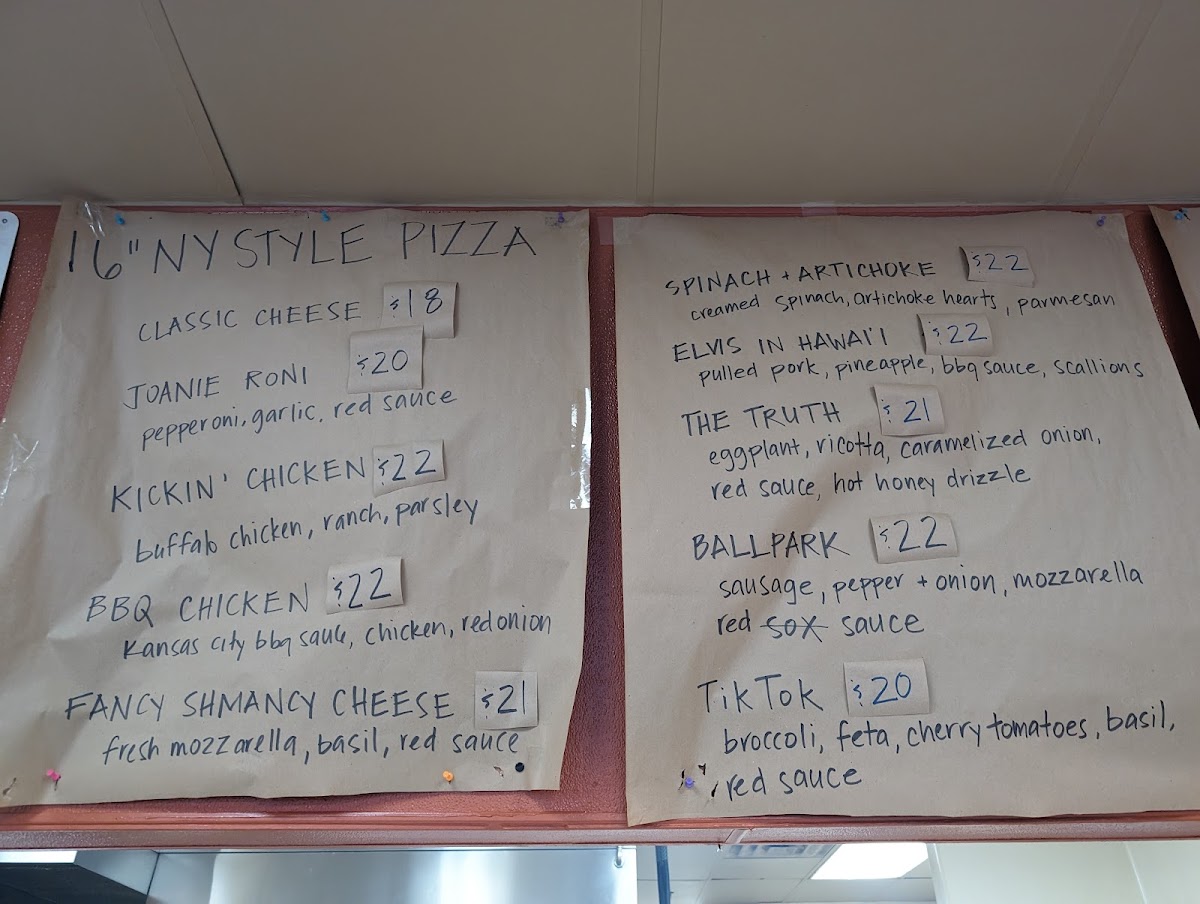 16" NY STYLE PIZZA
CLASSIC CHEESE $18
JOANIE RONI $20
pepperoni, garlic, red sauce
KICKIN' CHICKEN $22
buffalo chicken, ranch, parsley
BBQ CHICKEN $22
Kansas city bbq sauce, chicken, red onion
FANCY SHMANCY CHEESE $21
fresh mozzarella, basil, red sauce
SPINACH + ARTICHOKE $22
creamed spinach, artichoke hearts, parmesan
ELVIS IN HAWAI'I $22
pulled pork, pineapple, bbq sauce, scallions
THE TRUTH $21
eggplant, ricotta, caramelized onion,
red sauce, hot honey drizzle
BALLPARK $22
sausage, pepper + onion, mozzarella
red sox sauce
TikTok $20
broccoli, feta, cherry tomatoes, basil,
red sauce